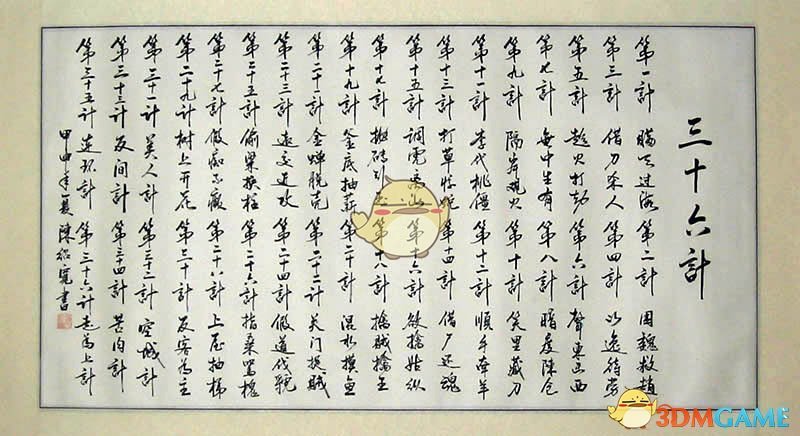 三十六計
第一計 瞞天过海 第二計 围魏救趙
第三計 借刀杀人 第四計 以逸待劳
第五計 趁火打劫 第六計 聲東击西
第七計 無中生有 第八計 暗度陳仓
第九計 隔岸观火 第十計 笑里藏刀
第十一計 李代桃僵 第十二計 順手牵羊
第十三計 打草惊蛇 第十四計 借尸还魂
第十五計 调虎离山 第十六計 欲擒姑纵
第十七計 抛砖引玉 第十八計 擒贼擒王
第十九計 釜底抽薪 第二十計 混水摸鱼
第二十一計 金蝉脱壳 第二十二計 关门捉贼
第二十三計 远交近攻 第二十四計 假道伐虢
第二十五計 偷梁换柱 第二十六計 指桑骂槐
第二十七計 假痴不癫 第二十八計 上屋抽梯
第二十九計 树上开花 第三十計 反客为主
第三十一計 美人計 第三十二計 空城計
第三十三計 反间計 第三十四計 苦肉計
第三十五計 連环計 第三十六計 走为上計
甲申年夏 陳 書
3DMGAME